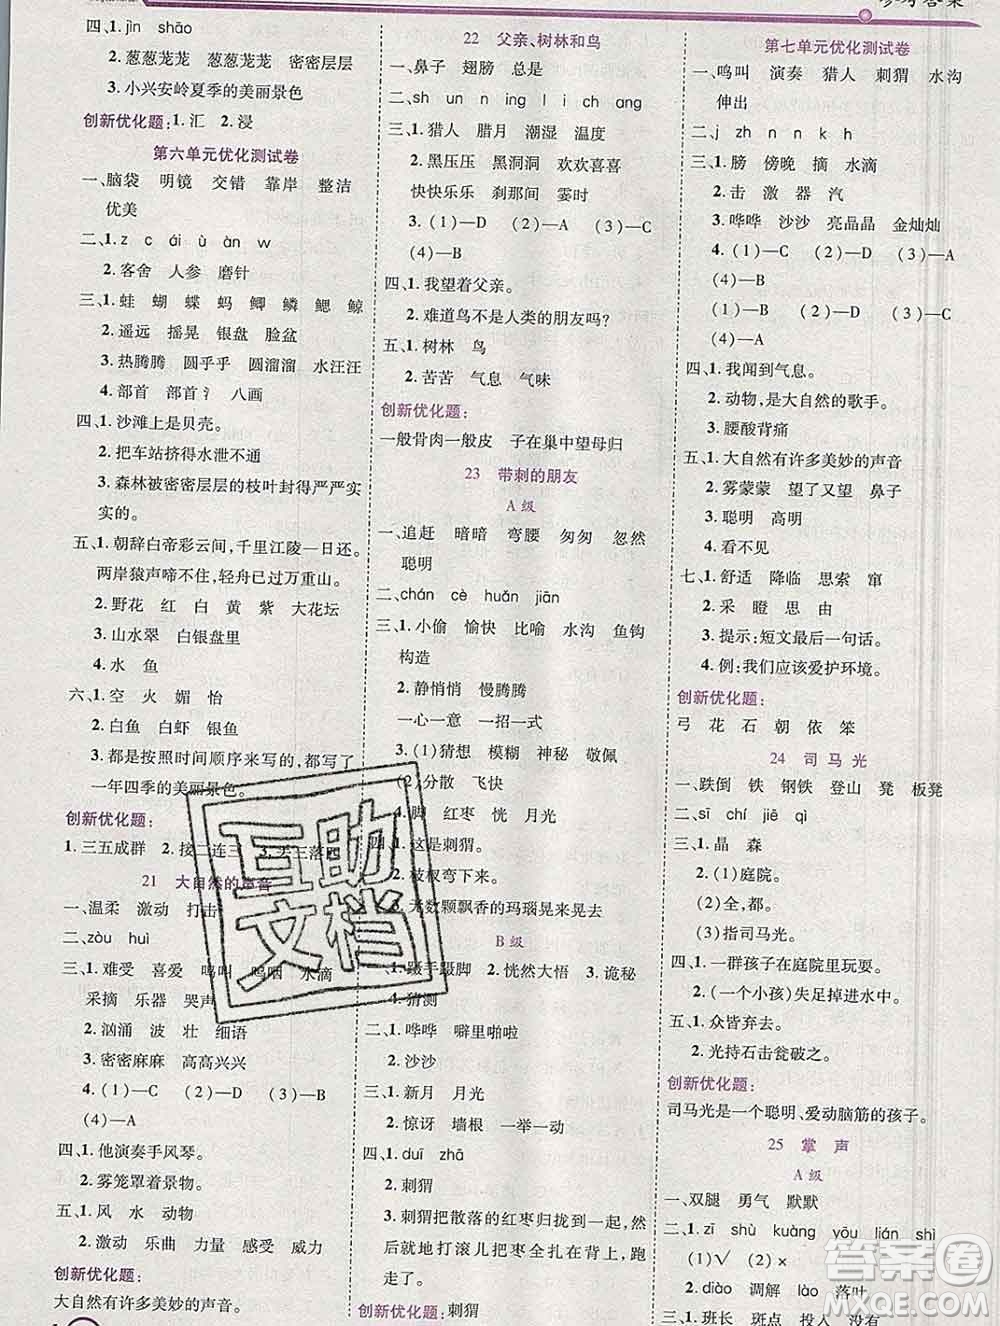 参考答案
四、1. jìn shāo
2. 葱葱茏茏 葱葱茏茏 密密层层
3. 小兴安岭夏季的美丽景色
创新优化题:1. 汇 2. 浸
第六单元优化测试卷
一、脑袋 明镜 交错 靠岸 整洁
优美
二、1. z c ái ù àn w
2. 客舍 人参 磨针
三、1. 蛙 蝴 蝶 蚂 鲫 鳞 鳃 鲸
2. 遥远 摇晃 银盘 脸盆
3. 热腾腾 圆乎乎 圆溜溜 水汪汪
4. 部首 部首氵 八画
四、1. 沙滩上是贝壳。
2. 把车站挤得水泄不通
3. 森林被密密层层的枝叶封得严严实
实的。
五、1. 朝辞白帝彩云间,千里江陵一日还。
两岸猿声啼不住,轻舟已过万重山。
2. 野花 红 白 黄 紫 大花坛
3. 山水翠 白银盘里
4. 水 鱼
六、1. 空 火 媚 怡
2. 白鱼 白虾 银鱼
3. 都是按照时间顺序来写的,都写了
一年四季的美丽景色。
创新优化题:
1. 三五成群 2. 接二连三 3. 丢三落四
21 大自然的声音
一、温柔 激动 打击
二、zòu huì
三、1. 难受 喜爱 鸣叫 呜咽 水滴
采摘 乐器 哭声
2. 汹涌 波 壮 细语
3. 密密麻麻 高高兴兴
4. (1)—C (2)—D (3)—B
(4)—A
四、1. 他演奏手风琴。
2. 雾笼罩着景物。
五、1. 风 水 动物
2. 激动 乐曲 力量 感受 威力
创新优化题:
大自然有许多美妙的声音。
22 父亲、树林和鸟
一、鼻子 翅膀 总是
二、sh un n ing l i ch ang
三、1. 猎人 腊月 潮湿 温度
2. 黑压压 黑洞洞 欢欢喜喜
快快乐乐 刹那间 霎时
3. (1)—D (2)—A (3)—C
(4)—B
四、1. 我望着父亲。
2. 难道鸟不是人类的朋友吗?
五、1. 树林 鸟
2. 苦苦 气息 气味
创新优化题:
一般骨肉一般皮 子在巢中望母归
23 带刺的朋友
A 级
一、追赶 暗暗 弯腰 匆匆 忽然
聪明
二、chán cè huǎn jiān
三、1. 小偷 愉快 比喻 水沟 鱼钩
构造
2. 静悄悄 慢腾腾
一心一意 一招一式
3. (1)猜想 模糊 神秘 敬佩
(2)分散 飞快
4. 脚 红枣 恍 月光
四、1. 这是刺猬。
2. 枝杈弯下来。
3. 无数颗飘香的玛瑙晃来晃去
B 级
一、1. 蹑手蹑脚 2. 恍然大悟 3. 诡秘
4. 猜测
二、1. 哗哗 噼里啪啦
2. 沙沙
三、1. 新月 月光
2. 惊讶 墙根 一举一动
四、1. duī zhā
2. 刺猬
3. 刺猬把散落的红枣归拢到一起,然
后就地打滚儿把枣全扎在背上,跑
走了。
创新优化题:刺猬
第七单元优化测试卷
一、鸣叫 演奏 猎人 刺猬 水沟
伸出
二、j zh n n k h
三、1. 膀 傍晚 摘 水滴
2. 击 激 器 汽
3. 哗哗 沙沙 亮晶晶 金灿灿
4. (1)—D (2)—C (3)—A
(4)—B
(1)—B (2)—D (3)—C
(4)—A
四、1. 我闻到气息。
2. 动物,是大自然的歌手。
3. 腰酸背痛
五、1. 大自然有许多美妙的声音
2. 雾蒙蒙 望了又望 鼻子
3. 聪明 高明
4. 看不见
七、1. 舒适 降临 思索 窜
2. 采 瞪 思 由
3. 提示:短文最后一句话。
4. 例:我们应该爱护环境。
创新优化题:
弓 花 石 朝 依 笨
24 司马光
一、跌倒 铁 钢铁 登山 凳 板凳
二、sī chí jiē qì
三、1. 晶 森
2. (1)庭院。
(2)全,都。
(3)指司马光。
四、1. 一群孩子在庭院里玩耍。
2. (一个小孩)失足掉进水中。
五、1. 众皆弃去。
2. 光持石击瓮破之。
创新优化题:
司马光是一个聪明、爱动脑筋的孩子。
25 掌声
A 级
一、双腿 勇气 默默
二、1. zī shù kuàng yōu lián shì
(1)√ (2)×
2. diào 调解 lào 落叶
三、1. 班长 斑点 投入 没有
互助文档
答案圈
MXQE.COM